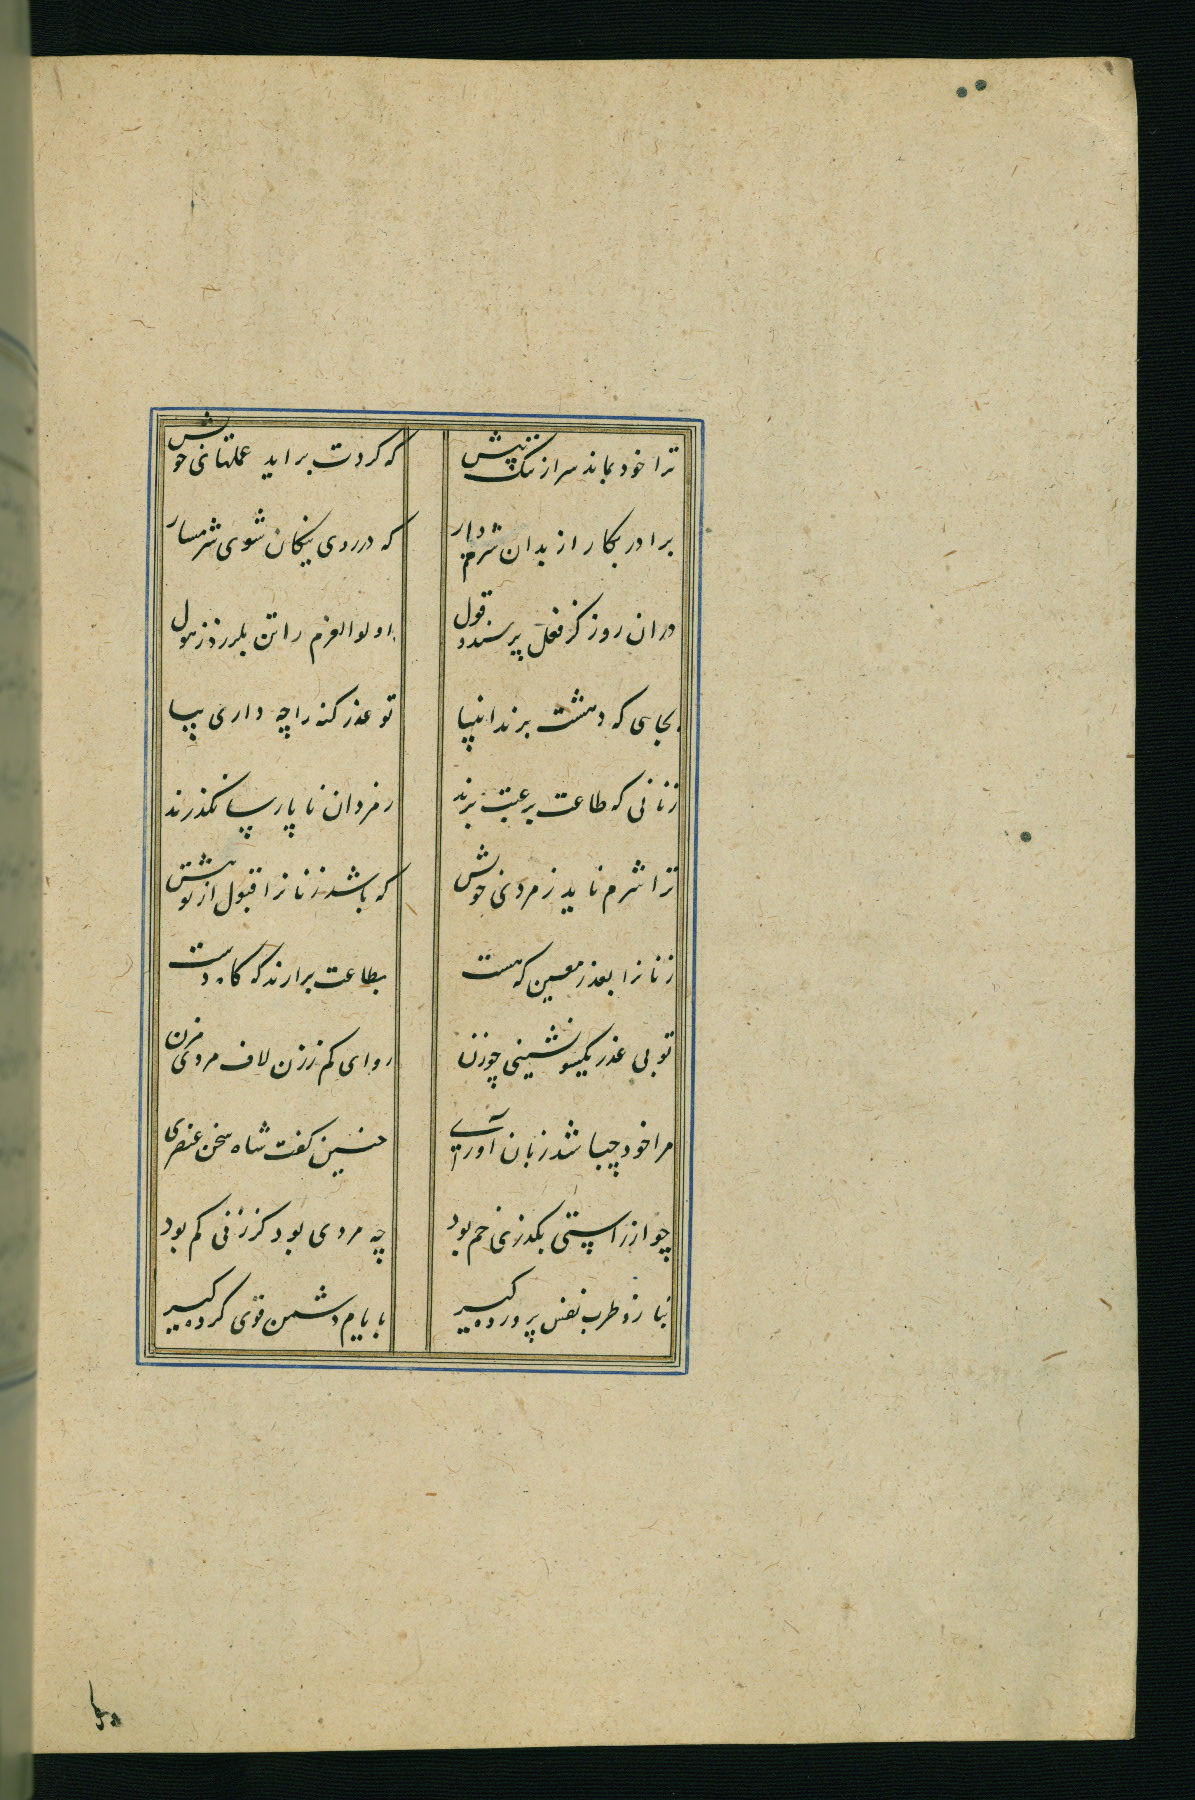 ترا خود بماند سر از ننگ پیش که کردت براید عملهای خویش
برادر بکار از بدان شرم دار که در روی نیکان شوی شرمسار
در ان روز کز فعل پرسند و قول اولو العزم را تن بلرزد ز هول
بجای که دهشت برند انبیا تو عذر کنه را چه داری بیا
زنانی که طاعت برغبت برند ز مردان ناپارسا بگذرند
ترا شرم ناید ز مردی خویش که باشد زنانرا قبول از تو بیش
زنانرا بعذر معین که هست بطاعت برارند که کاه دست
تو بی عذر یکسو نشینی چو زن رو ای کم ز زن لاف مردی مزن
مرا خود چه باشد زبان آوری چنین گفت شاه سخن عنصری
چو از راستی بگذری خم بود چه مردی بود کز زنی کم بود
بناز و طرب نفس پرورده گیر بایام دشمن قوی کرده گیر